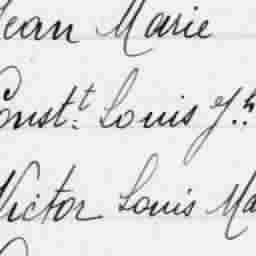 Jean Marie
Const.t Louis J.h
Victor Louis Ma